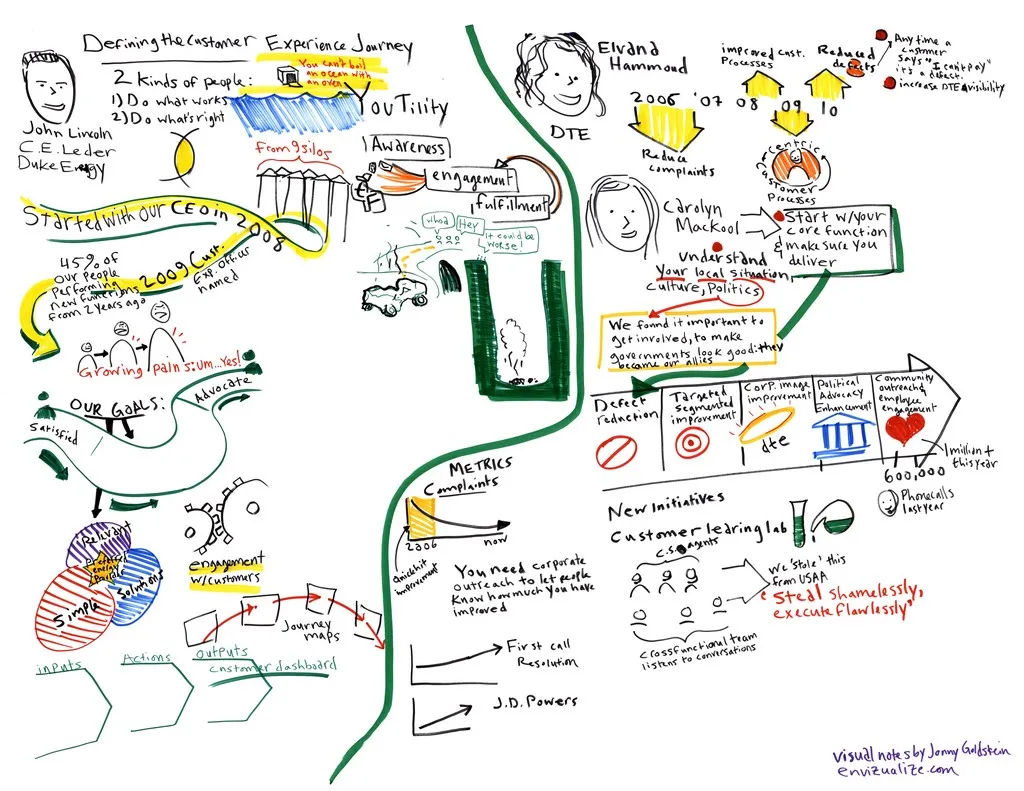 Defining the Customer Experience Journey
John Lincoln
C.E. Leder
Duke Energy
2 Kinds of people:
1) Do what works
2) Do what's right
You can't boil
an ocean with
an oven
YouTility
From 9 silos
Awareness
engagement
fulfillment
Started with our CEO in 2008
2009 Cust.
exp. officer
named
45% of
our people
performing
new functions
from 2 years ago
Growing pain sium...Yes!
whoa
Hey
It could be
worse!
OUR GOALS:
Satisfied
Advocate
Relevant
Preferred
energy
Provider
Simple
Solutions
engagement
w/customers
Journey
maps
inputs
Actions
outputs
Customer dashboard
METRICS
Complaints
2006
now
improvement
You need corporate
outreach to let people
Know how much you have
improved
First call
Resolution
J.D. Powers
Elvana
Hammoud
DTE
improved cust.
Processes
Reduced
defects
Any time a
customer
says "I can't pay"
it's a defect.
increase DTE visibility
2006 '07 08 09 10
Reduce
complaints
centric
Customer
Processes
Carolyn
Mackool
Start w/your
core function
& make sure you
deliver
understand
your local situation,
culture, Politics
We found it important to
get involved, to make
governments look good: they
became our allies
Defect
reduction
Targeted
segmented
improvement
Corp. image
improvement
dte
Political
Advocacy
Enhancement
Community
outreach, employee
engagement
1 million +
this year
600,000
Phonecalls
last year
New Initiatives
Customer learing lab
C.S. agents
We 'stole' this
from USAA
"Steal shamelessly,
execute flawlessly"
Crossfunctional team
listens to conversations
visual notes by Jonny Goldstein
envizualize.com